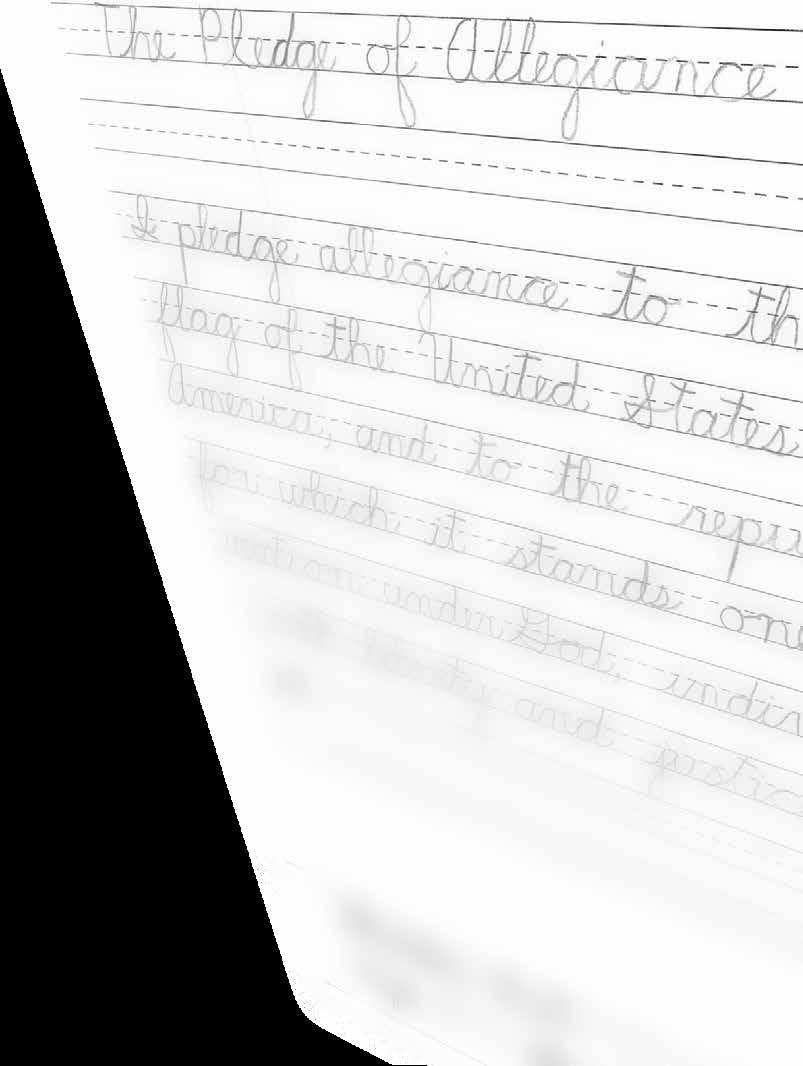 The Pledge of Allegiance
I pledge allegiance to th
flag of the United States
America, and to the repu
for which it stands one
nation under God, indiv
liberty and justic